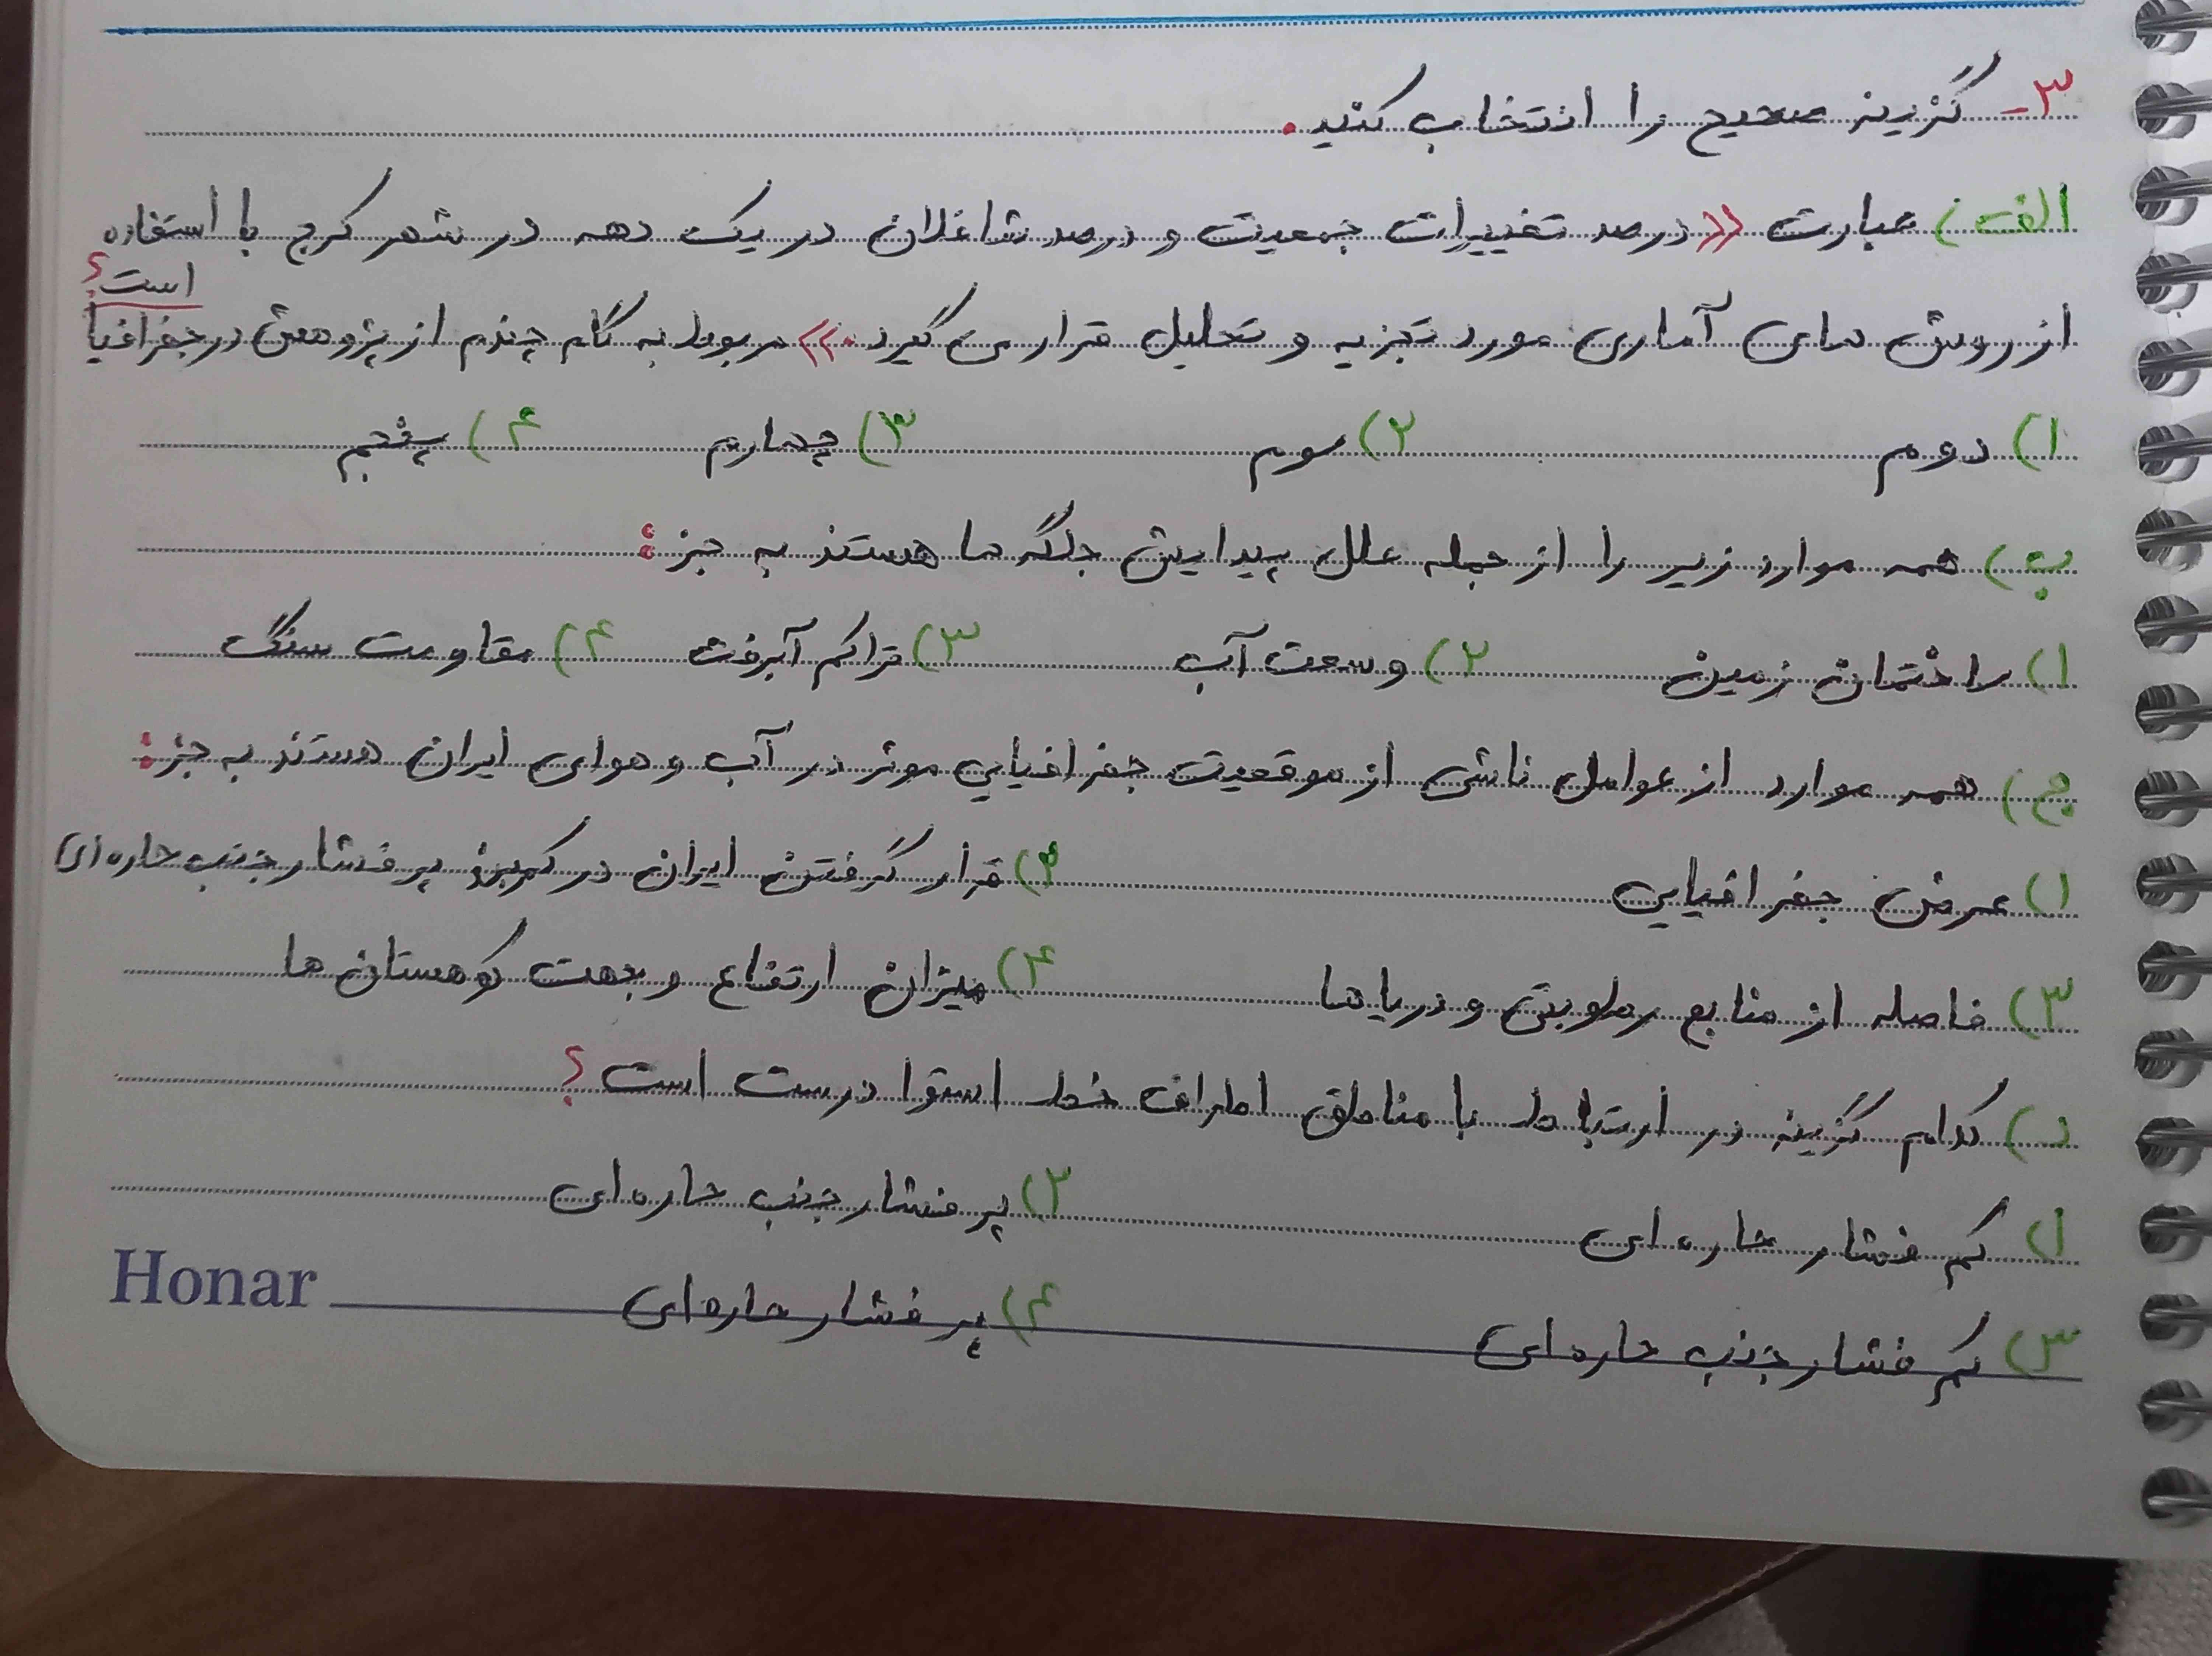 ۳- گزینه صحیح را انتخاب کنید.
الف) عبارت «درصد تغییرات جمعیت و درصد شاغلان در یک دهه در شهر کرج با استفاده
از روش های آماری مورد تجزیه و تحلیل قرار می گیرد.» مربوط به گام چندم از پژوهش در جغرافیا است؟
۱) دوم ۲) سوم ۳) چهارم ۴) پنجم
ب) همه موارد زیر را از جمله علل پیدایش جلگه ها هستند به جز:
۱) ساختمان زمین ۲) وسعت آب ۳) تراکم آبرفت ۴) مقاومت سنگ
ج) همه موارد از عوامل ناشی از موقعیت جغرافیایی موثر در آب و هوای ایران هستند به جز:
۱) عرض جغرافیایی ۲) قرار گرفتن ایران در کمربند پر فشار جنب حاره ای
۳) فاصله از منابع رطوبتی و دریاها ۴) میزان ارتفاع و جهت کوهستان ها
د) کدام گزینه در ارتباط با مناطق اطراف خط استوا درست است؟
۱) کم فشار حاره ای ۲) پر فشار جنب حاره ای
۳) کم فشار جنب حاره ای ۴) پر فشار حاره ای
Honar